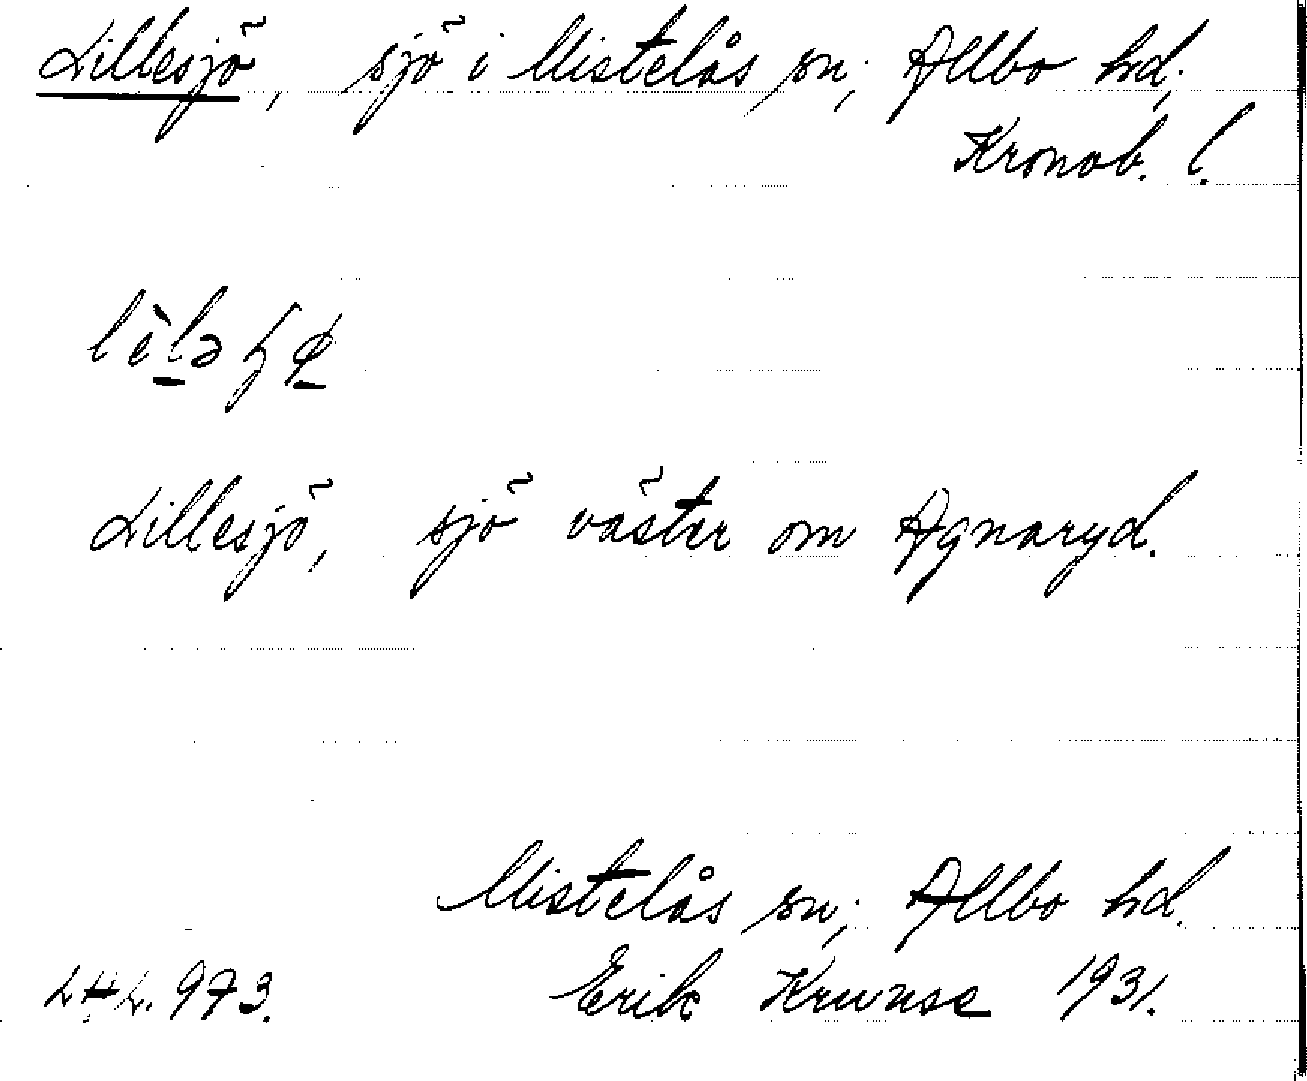 Lillesjö, sjö i Mistelås sn; Allbo hd;
Kronob. l.
Lillesjö, sjö väster om Agnaryd.
Mistelås sn; Allbo hd.
973. Erik 1931.